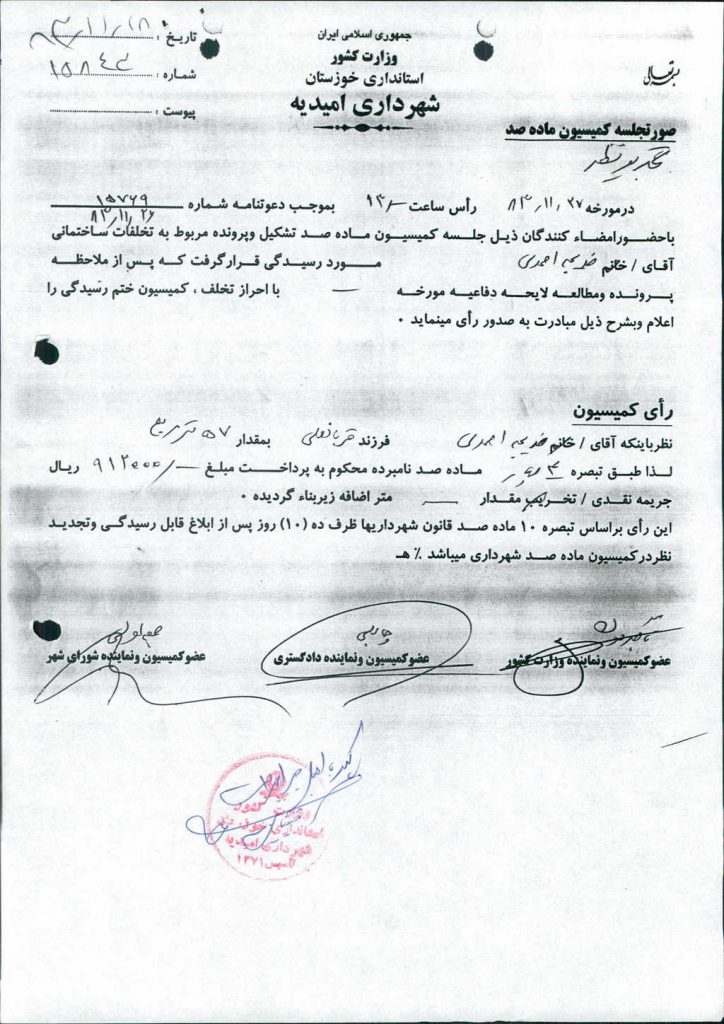 جمهوری اسلامی ایران
وزارت کشور
استانداری خوزستان
شهرداری امیدیه
تاریخ : ۸۳/۱۱/۲۸
شماره : ۱۵۸۴۳
پیوست :
برتعالی
صورتجلسه کمیسیون ماده صد
درمورخه ۸۳/۱۱/۲۷ رأس ساعت ۱۳ بموجب دعوتنامه شماره ۱۵۷۶۹
۸۳/۱۱/۲۶
باحضورامضاء کنندگان ذیل جلسه کمیسیون ماده صد تشکیل وپرونده مربوط به تخلفات ساختمانی
آقای / خانم خدیجه احمدی مورد رسیدگی قرارگرفت که پس از ملاحظه
پرونده ومطالعه لایحه دفاعیه مورخه — با احراز تخلف ، کمیسیون ختم رسیدگی را
اعلام وبشرح ذیل مبادرت به صدور رأی مینماید ۰
رأی کمیسیون
نظرباینکه آقای / خانم خدیجه احمدی فرزند قربانعلی بمقدار ۵۷ متر مربع
لذا طبق تبصره ۴ ماده صد نامبرده محکوم به پرداخت مبلغ ۹۱۲۰۰۰/— ریال
جریمه نقدی / تخریب مقدار — متر اضافه زیربناء گردیده ۰
این رأی براساس تبصره ۱۰ ماده صد قانون شهرداریها ظرف ده (۱۰) روز پس از ابلاغ قابل رسیدگی وتجدید
نظردرکمیسیون ماده صد شهرداری میباشد ٪ هـ
عضوکمیسیون ونماینده وزارت کشور
عضوکمیسیون ونماینده دادگستری
عضوکمیسیون ونماینده شورای شهر
وزارت کشور
استانداری خوزستان
شهرداری امیدیه
تاسیس ۱۳۷۱